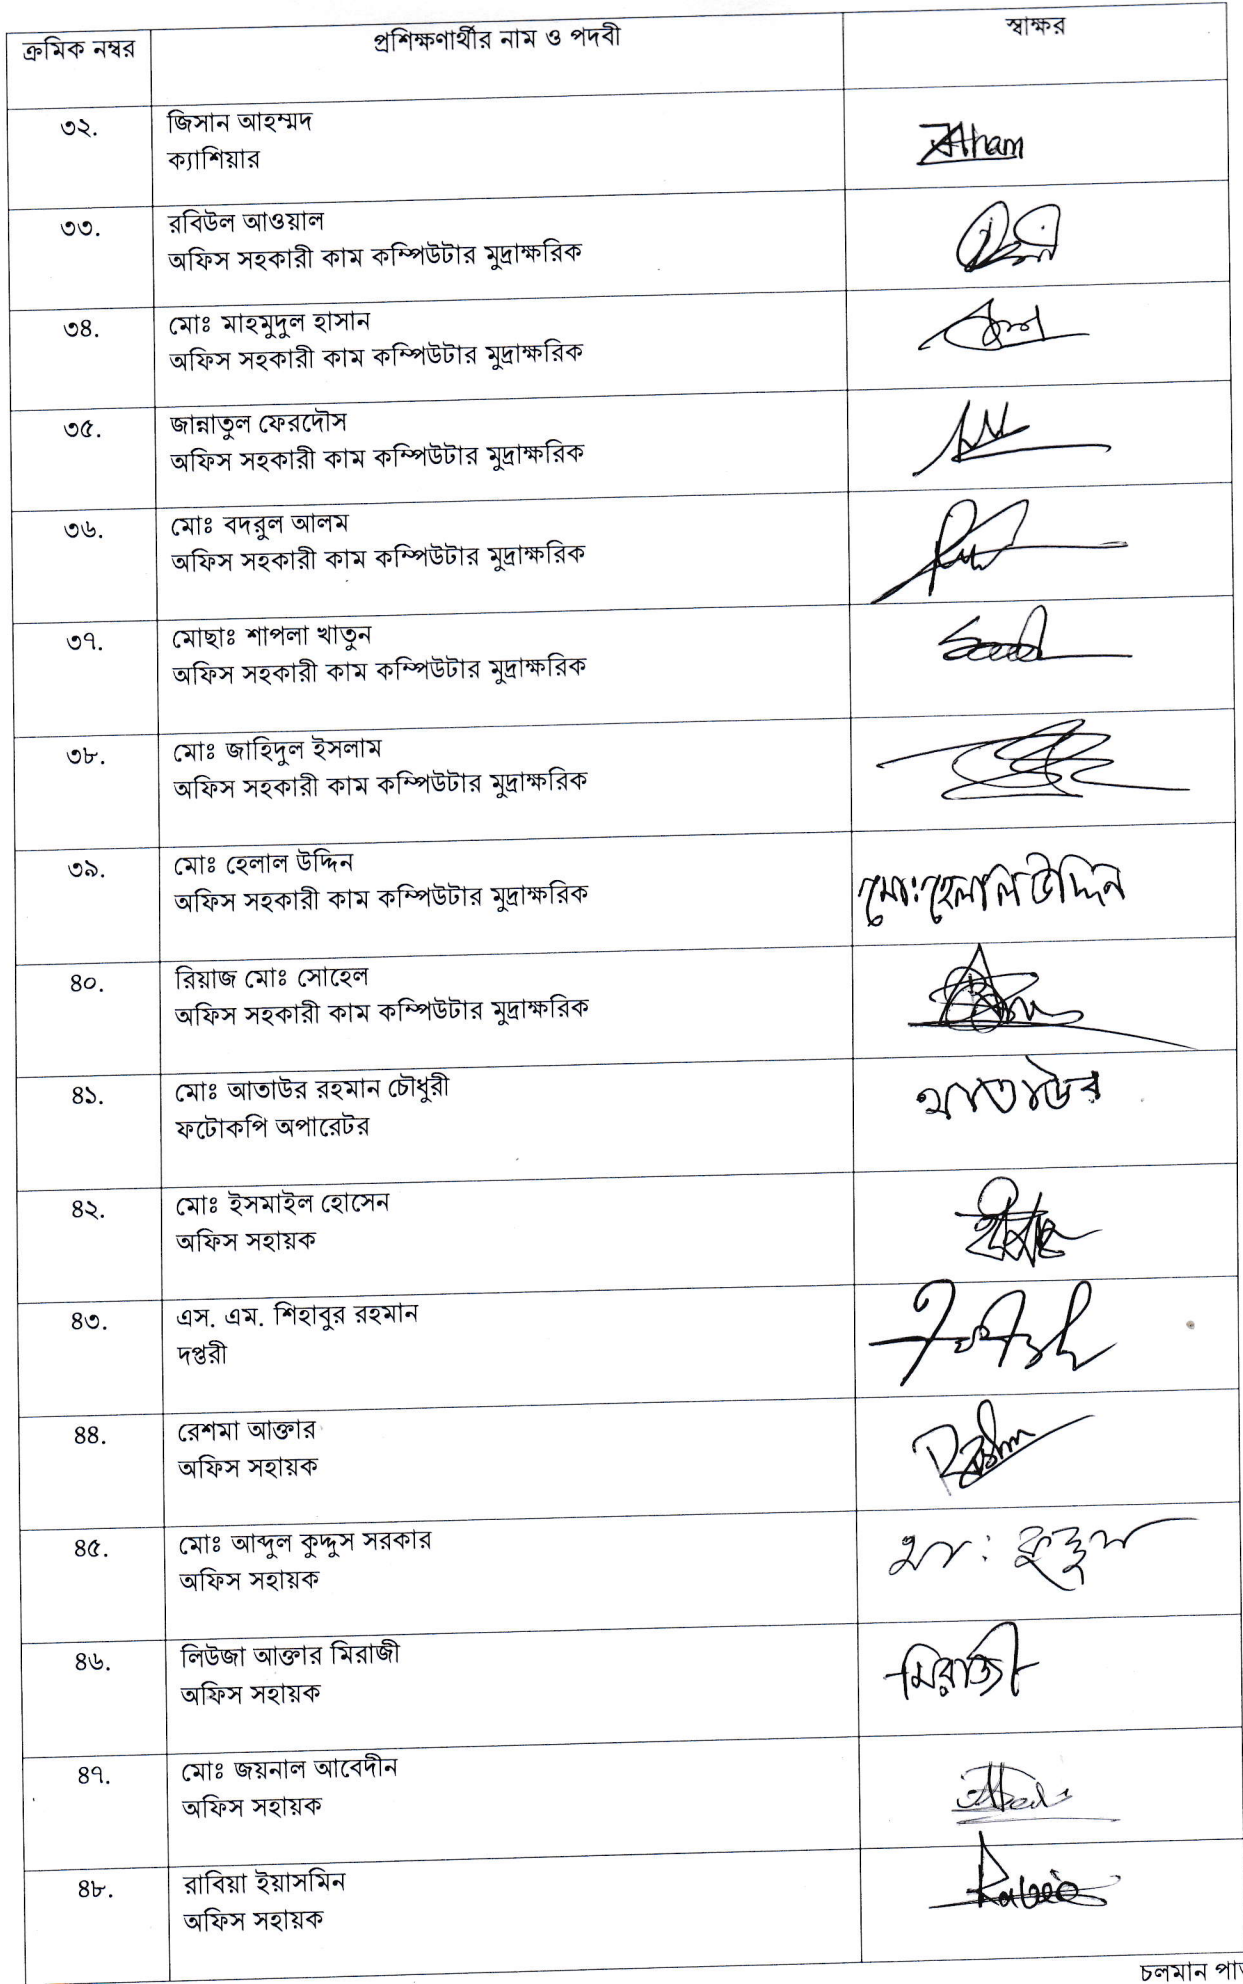 ক্রমিক নম্বর প্রশিক্ষণার্থীর নাম ও পদবী স্বাক্ষর
৩২. জিসান আহম্মদ
ক্যাশিয়ার
৩৩. রবিউল আওয়াল
অফিস সহকারী কাম কম্পিউটার মুদ্রাক্ষরিক
৩৪. মোঃ মাহমুদুল হাসান
অফিস সহকারী কাম কম্পিউটার মুদ্রাক্ষরিক
৩৫. জান্নাতুল ফেরদৌস
অফিস সহকারী কাম কম্পিউটার মুদ্রাক্ষরিক
৩৬. মোঃ বদরুল আলম
অফিস সহকারী কাম কম্পিউটার মুদ্রাক্ষরিক
৩৭. মোছাঃ শাপলা খাতুন
অফিস সহকারী কাম কম্পিউটার মুদ্রাক্ষরিক
৩৮. মোঃ জাহিদুল ইসলাম
অফিস সহকারী কাম কম্পিউটার মুদ্রাক্ষরিক
৩৯. মোঃ হেলাল উদ্দিন মো: হেলাল উদ্দিন
অফিস সহকারী কাম কম্পিউটার মুদ্রাক্ষরিক
৪০. রিয়াজ মোঃ সোহেল
অফিস সহকারী কাম কম্পিউটার মুদ্রাক্ষরিক
৪১. মোঃ আতাউর রহমান চৌধুরী আতাউর
ফটোকপি অপারেটর
৪২. মোঃ ইসমাইল হোসেন
অফিস সহায়ক
৪৩. এস. এম. শিহাবুর রহমান
দপ্তরী
৪৪. রেশমা আক্তার
অফিস সহায়ক
৪৫. মোঃ আব্দুল কুদ্দুস সরকার আ: কুদ্দুস
অফিস সহায়ক
৪৬. লিউজা আক্তার মিরাজী মিরাজী
অফিস সহায়ক
৪৭. মোঃ জয়নাল আবেদীন
অফিস সহায়ক
৪৮. রাবিয়া ইয়াসমিন
অফিস সহায়ক
চলমান